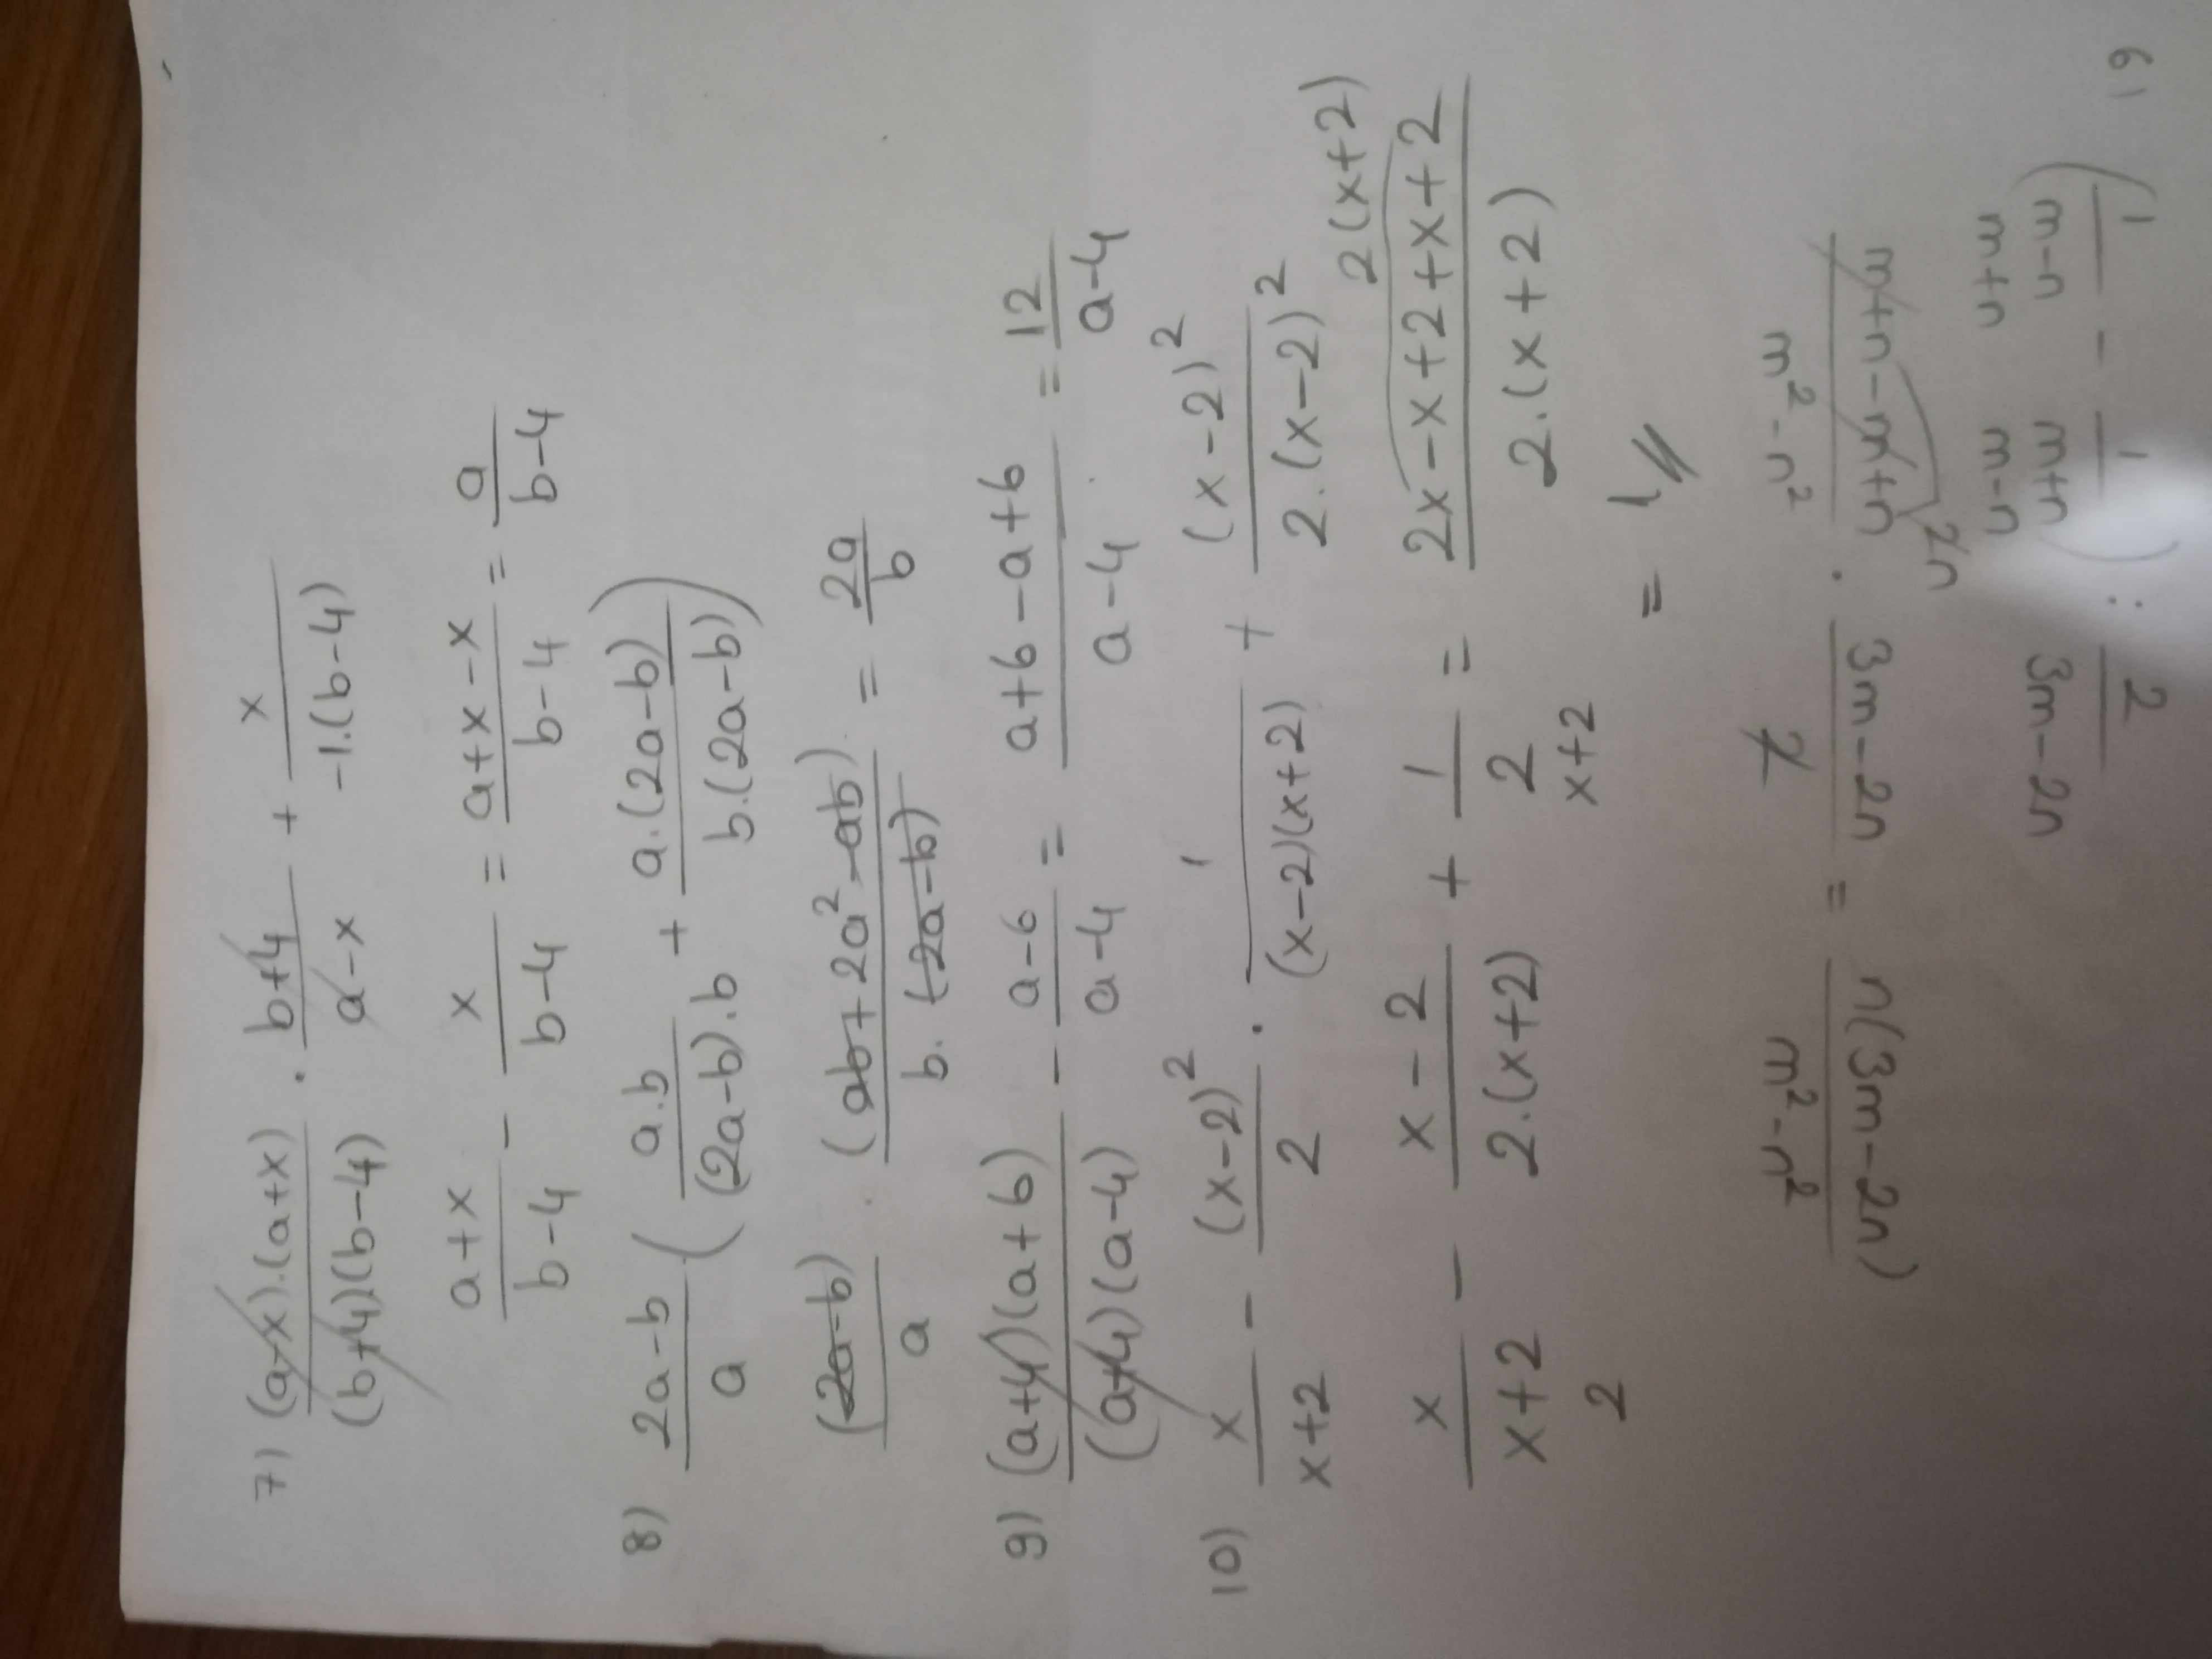 7) (a-x).(a+x)/(b+4)(b-4) . b+4/a-x + x/-1.(b-4)
a+x/b-4 - x/b-4 = a+x-x/b-4 = a/b-4
8) 2a-b/a (a.b/(2a-b).b + a.(2a-b)/b.(2a-b))
(2a-b)/a . (ab+2a²-ab)/b.(2a-b) = 2a/b
9) (a+4)(a+6)/(a+4)(a-4) - a-6/a-4 = a+6-a+6/a-4 = 12/a-4
10) x/x+2 - (x-2)²/2 . 1/(x-2)(x+2) + (x-2)²/2.(x-2)²
2(x+2)
x/x+2 - x-2/2.(x+2) + 1/2 = 2x-x+2+x+2/2.(x+2)
2 x+2
= 1
6) (1/m-n - 1/m+n) : 2/3m-2n
m+n m-n
m+n-m+n/m²-n² . 3m-2n/2 = n(3m-2n)/m²-n²
2n